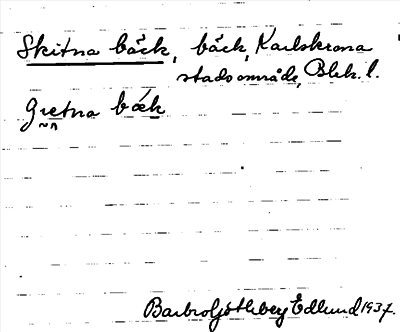 Skitna bäck, bäck, Karlskrona
stadsområde, Blek. l.
Gretna bæk
Barbro Göthberg Edlund 1937.